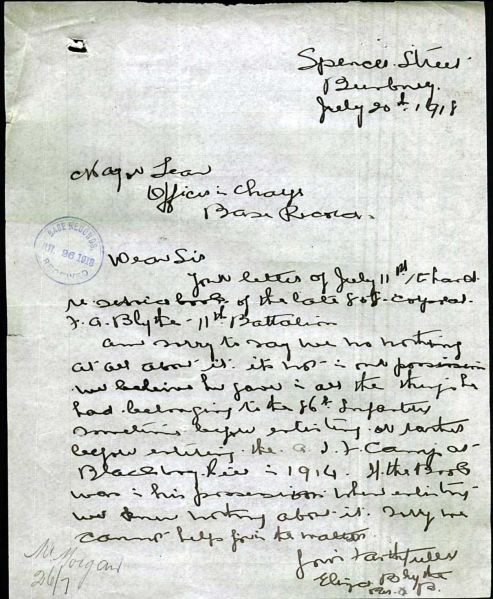 Spencer Street
Bunbury
July 20th 1918
Major Lean
Officer in Charge
Base Records.
BASE RECORDS
26 1918
RECEIVED
Dear Sir
Your letter of July 11st to hand
re service book of the late Corporal
F. G. Blythe 11th Battalion
am sorry to say we no nothing
at all about it. its not in our possession
we believe he gave in all the things he
had belonging to the 86th Infantry
sometime before enlisting or rather
before entering the A. I. F Camp at
Blackboy Hill in 1914. If the Book
was in his possession when enlisting
we knew nothing about it. Sorry we
cannot help you in the matter
Yours Faithfully
Eliza Blythe
Mr Morgan
26/7